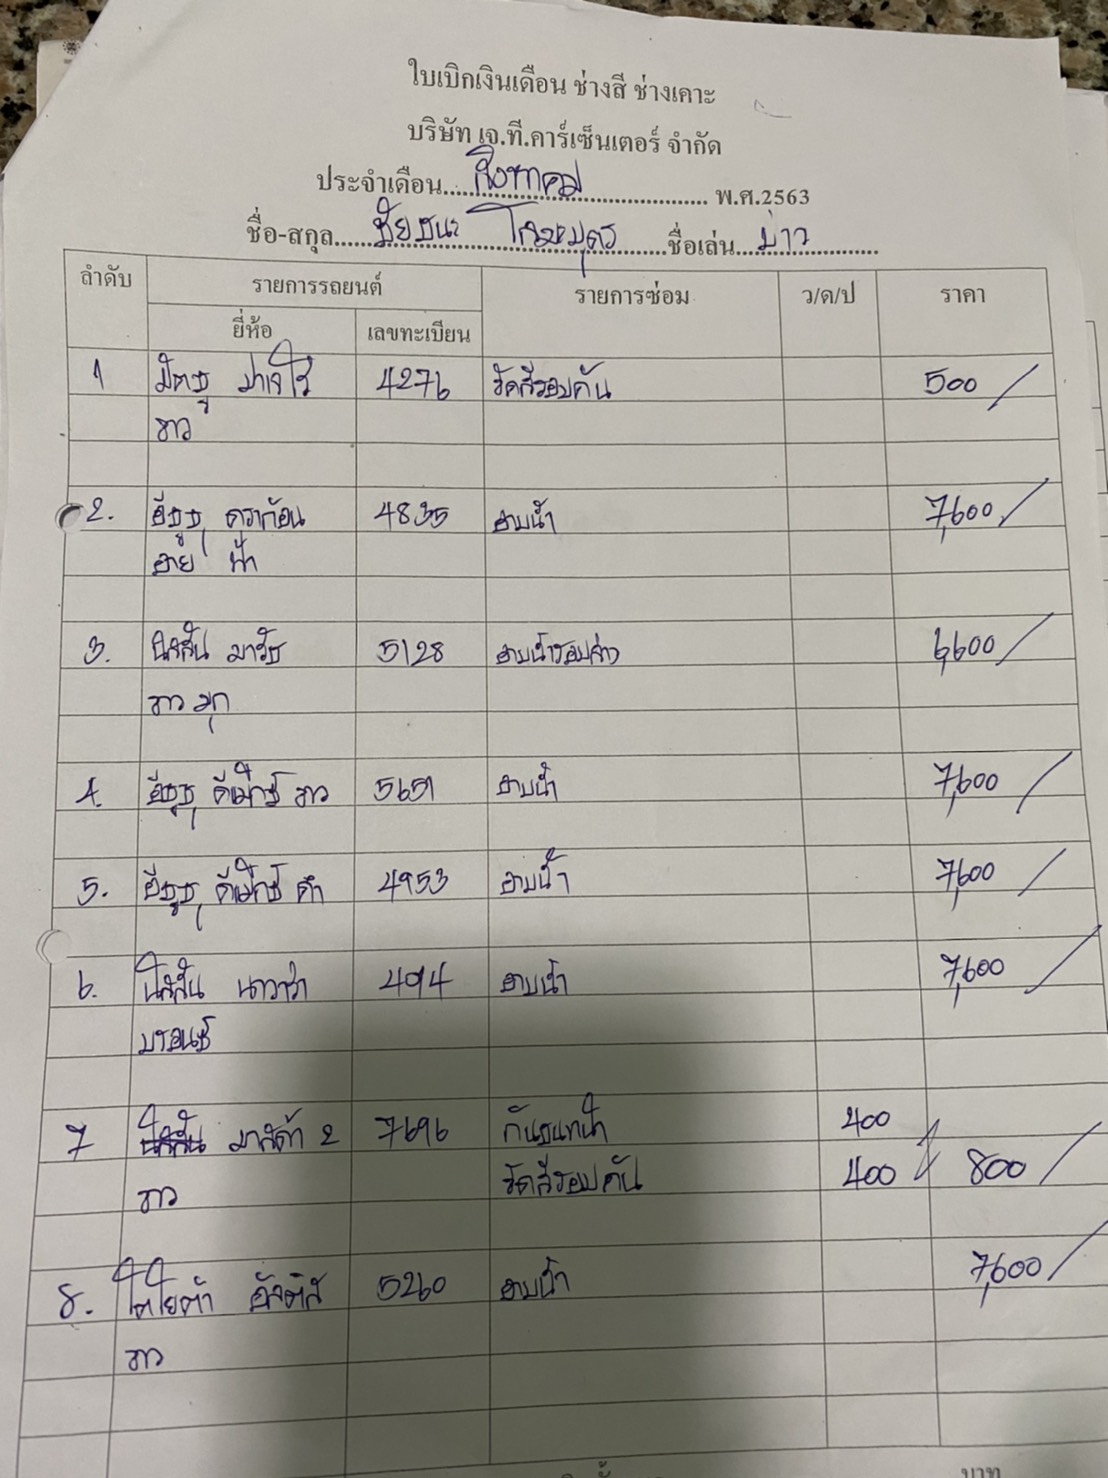 ใบเบิกเงินเดือน ช่างสี ช่างเคาะ
บริษัท เจ.ที.คาร์เซ็นเตอร์ จำกัด
ประจำเดือน....สิงหาคม.... พ.ศ.2563
ชื่อ-สกุล....ชัยชนะ....ชื่อเล่น....บ่าว....
ลำดับ รายการรถยนต์ รายการซ่อม ว/ด/ป ราคา
ยี่ห้อ เลขทะเบียน
1 มิตซู ปาเจโร 4276 ขัดสีรอบคัน 500
ขาว
2. อีซูซุ ดราก้อน 4835 อาบน้ำ 7,600
อาย ฟ้า
3. นิสสัน มาร์ช 5128 อาบน้ำรอบล่าง 6,600
ขาว มุก
4. อีซูซุ ดีแม็กซ์ ขาว 5651 อาบน้ำ 7,600
5. อีซูซุ ดีแม็กซ์ ดำ 4953 อาบน้ำ 7,600
6. นิสสัน นาวาร่า 494 อาบน้ำ 7,600
บรอนซ์
7 มาสด้า 2 7696 กันชนหน้า 400
ขาว ขัดสีรอบคัน 400 800
8. โตโยต้า อัลติส 5260 อาบน้ำ 7,600
ขาว
บาท